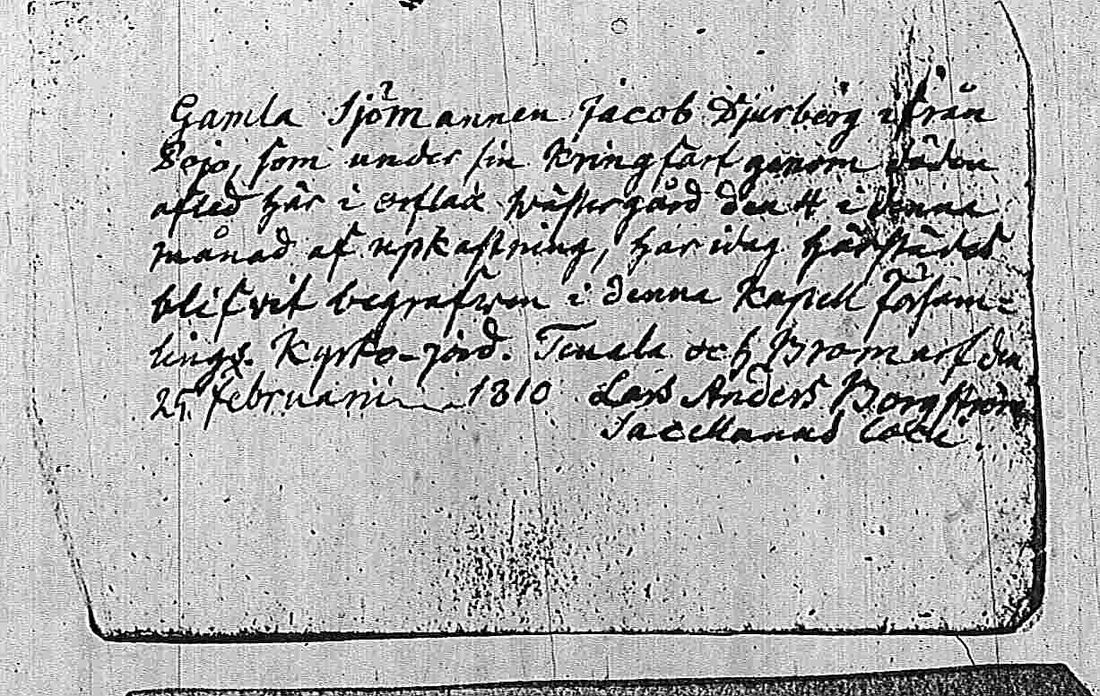 Gamla Sjömannen Jacob Djerberg ifrån
Pojo, som under sin Kringfart genom döden
afled här i Westergård den 4 i denna
månad af upkastning, har idag härstädes
blifvit begrafven i denna Kapell Församˍ
lings Kyrko-jord. Tenala och Bromarf den
25 februarii 1810 Lars Anders Borgström
Sacellanus loci.